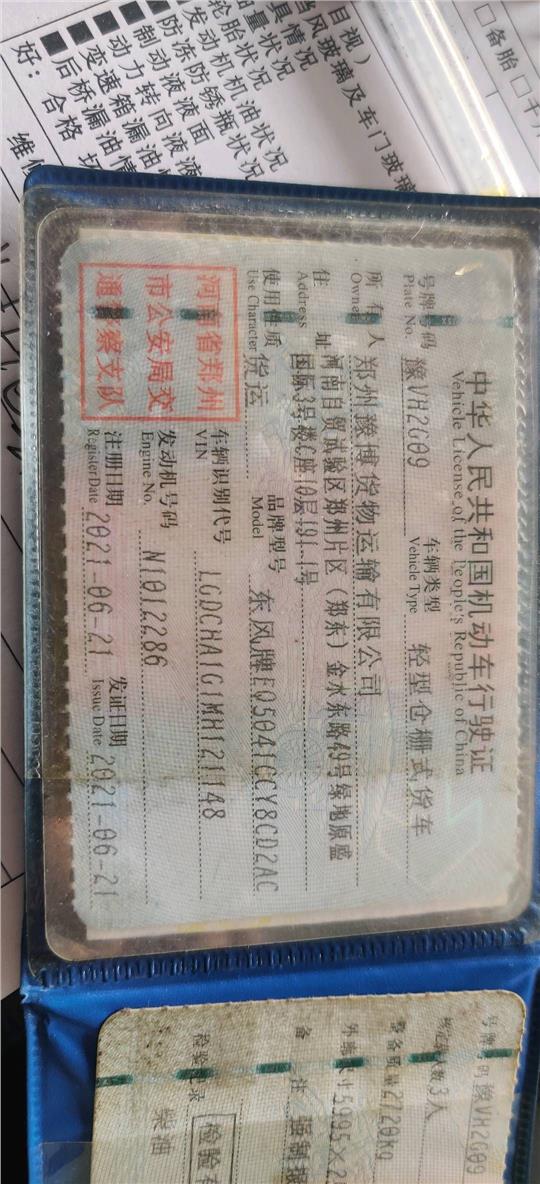 目视）
当风玻璃及车门玻璃
具情况
油量状况
轮胎状况
发动机机油状况
防冻防锈瓶状况
制动液液面
动力转向液
变速箱漏油
后桥漏油情
好： 合格
维修
备胎
中华人民共和国机动车行驶证
Vehicle License of the People's Republic of China
号牌号码 豫VH2G09 车辆类型 轻型仓栅式货车
Plate No. Vehicle Type
所有人 郑州豫博货物运输有限公司
Owner
住址 河南自贸试验区郑州片区（郑东）金水东路49号绿地原盛
Address 国际3号楼C座10层101-1号
使用性质 货运 品牌型号 东风牌EQ5041CCY8CD2AC
Use Character Model
河南省郑州
市公安局交
通警察支队
车辆识别代号 LGDCHA1G1MH121148
VIN
发动机号码 N1012286
Engine No.
注册日期 2021-06-21 发证日期 2021-06-21
Register Date Issue Date
号牌号码 豫VH2G09
核定载人数 3人
整备质量 2720kg
外廓尺寸 5995×2
备注 强制报
检验记录 检验有
柴油